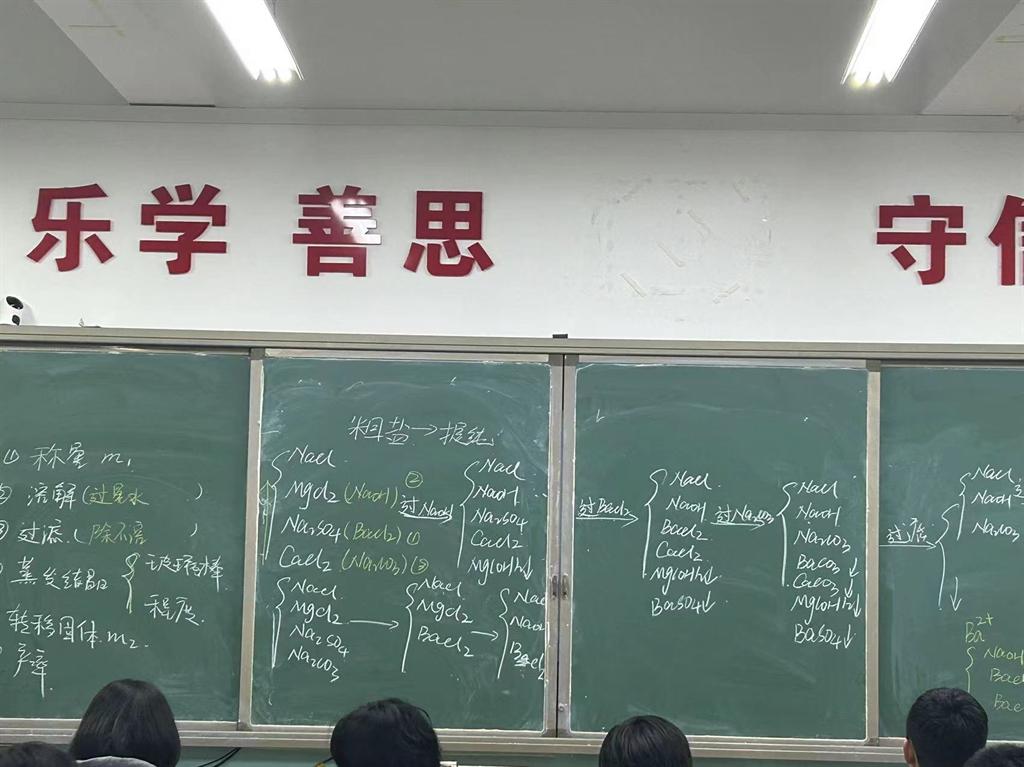 乐学 善思 守信
① 称量 m₁
② 溶解(过量水 )
③ 过滤(除不溶 )
④ 蒸发结晶 { 玻璃棒
程度.
转移固体 m₂.
产率
粗盐→提纯
NaCl
MgCl₂ (NaOH) ②
Na₂SO₄ (BaCl₂) ①
CaCl₂ (Na₂CO₃) ③
过NaOH
NaCl
NaOH
Na₂SO₄
CaCl₂
Mg(OH)₂↓
NaCl
MgCl₂
Na₂SO₄
Na₂CO₃
NaCl
MgCl₂
BaCl₂
NaCl
NaOH
BaCl₂
过BaCl₂
NaCl
NaOH
BaCl₂
CaCl₂
Mg(OH)₂↓
BaSO₄↓
过Na₂CO₃
NaCl
NaOH
Na₂CO₃
BaCO₃↓
CaCO₃↓
Mg(OH)₂↓
BaSO₄↓
过滤
NaCl
NaOH
Na₂CO₃
Ba²⁺
NaOH
BaCl
BaCl